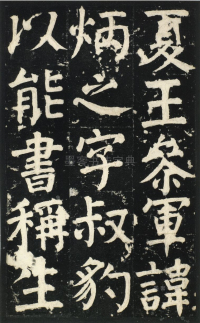 夏王參軍諱
炳之字叔豹
以能書稱生